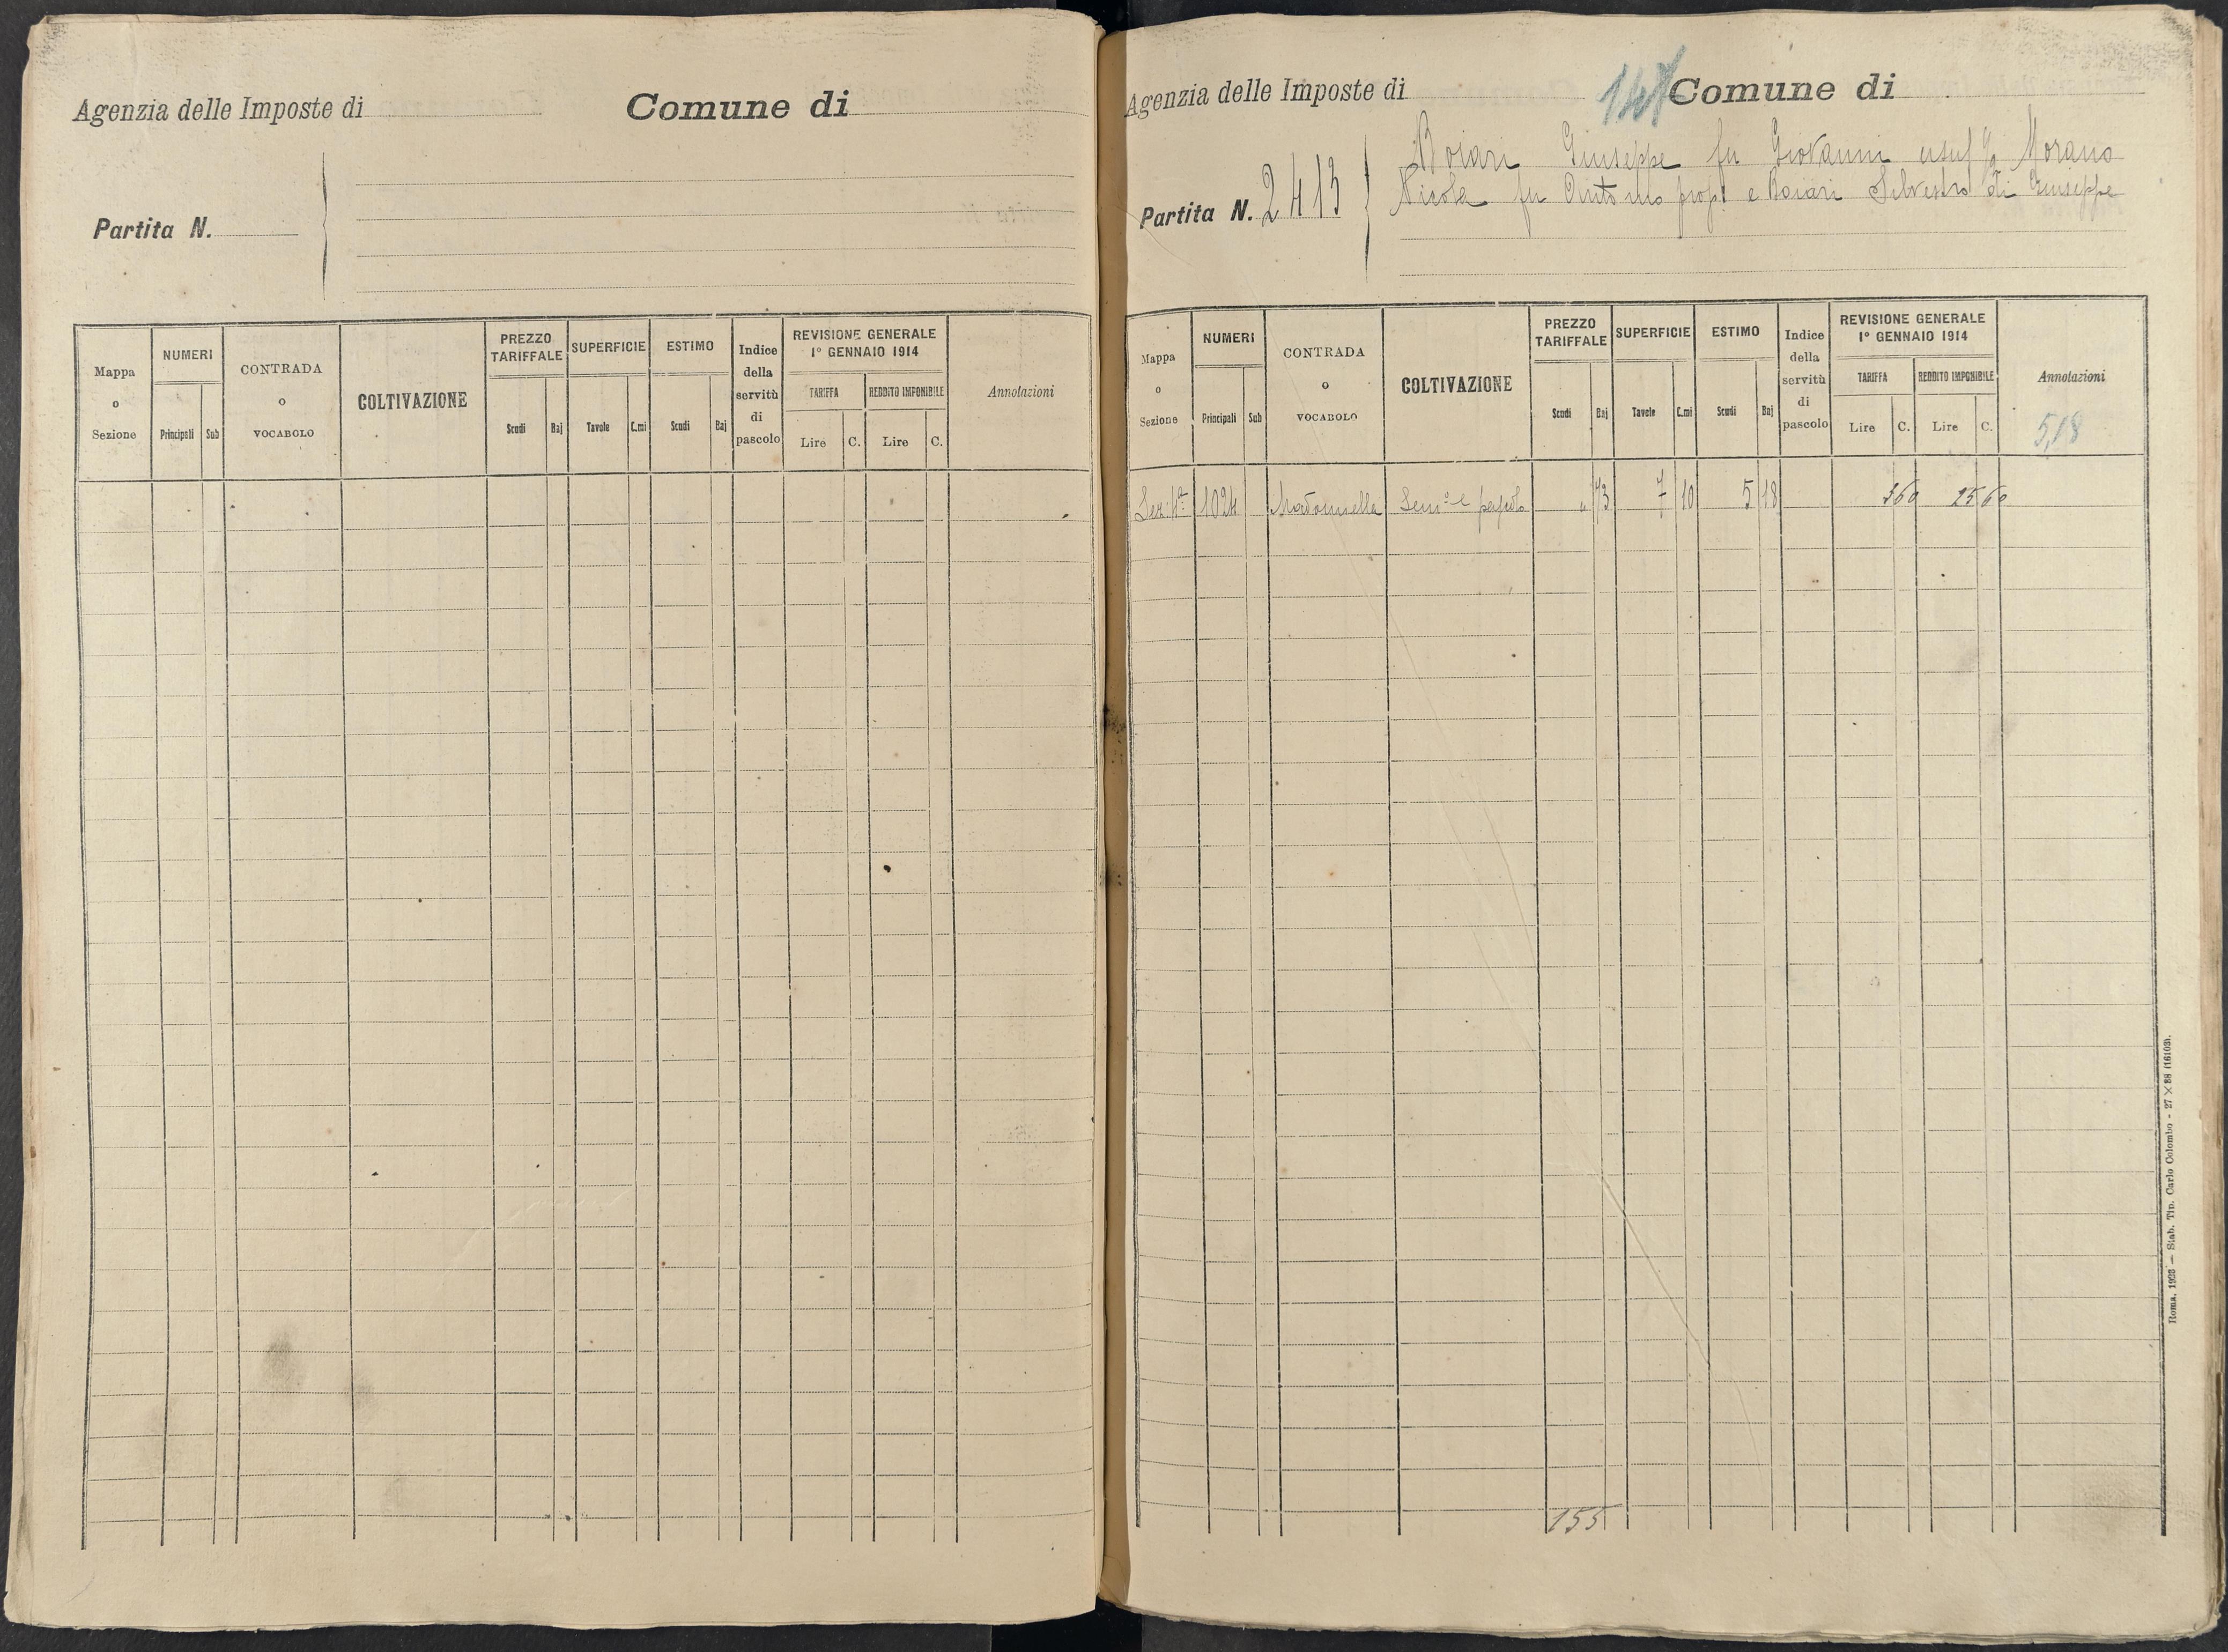 Agenzia delle Imposte di
Comune di
Partita N.
Mappa o Sezione
NUMERI
Principali Sub
CONTRADA o VOCABOLO
COLTIVAZIONE
PREZZO TARIFFALE
Scudi Baj
SUPERFICIE
Tavole C.mi
ESTIMO
Scudi Baj
Indice della servitù di pascolo
REVISIONE GENERALE
1° GENNAIO 1914
TARIFFA REDDITO IMPONIBILE
Lire C. Lire C.
Annotazioni
Agenzia delle Imposte di
147 Comune di
Boiari Giuseppe fu Giovanni usuf Morano
Partita N. 2413
Nicola fu Antonio prop e Boiari Silvestro di Giuseppe
Mappa o Sezione
NUMERI
Principali Sub
CONTRADA o VOCABOLO
COLTIVAZIONE
PREZZO TARIFFALE
Scudi Baj
SUPERFICIE
Tavole C.mi
ESTIMO
Scudi Baj
Indice della servitù di pascolo
REVISIONE GENERALE
1° GENNAIO 1914
TARIFFA REDDITO IMPONIBILE
Lire C. Lire C.
Annotazioni
5,18
Sez. 1024 Madonnella Sem° e 73 7 10 5 18 360 25 60
155
Roma, 1923 — Stab. Tip. Carlo Colombo - 27 × 88 (16103).